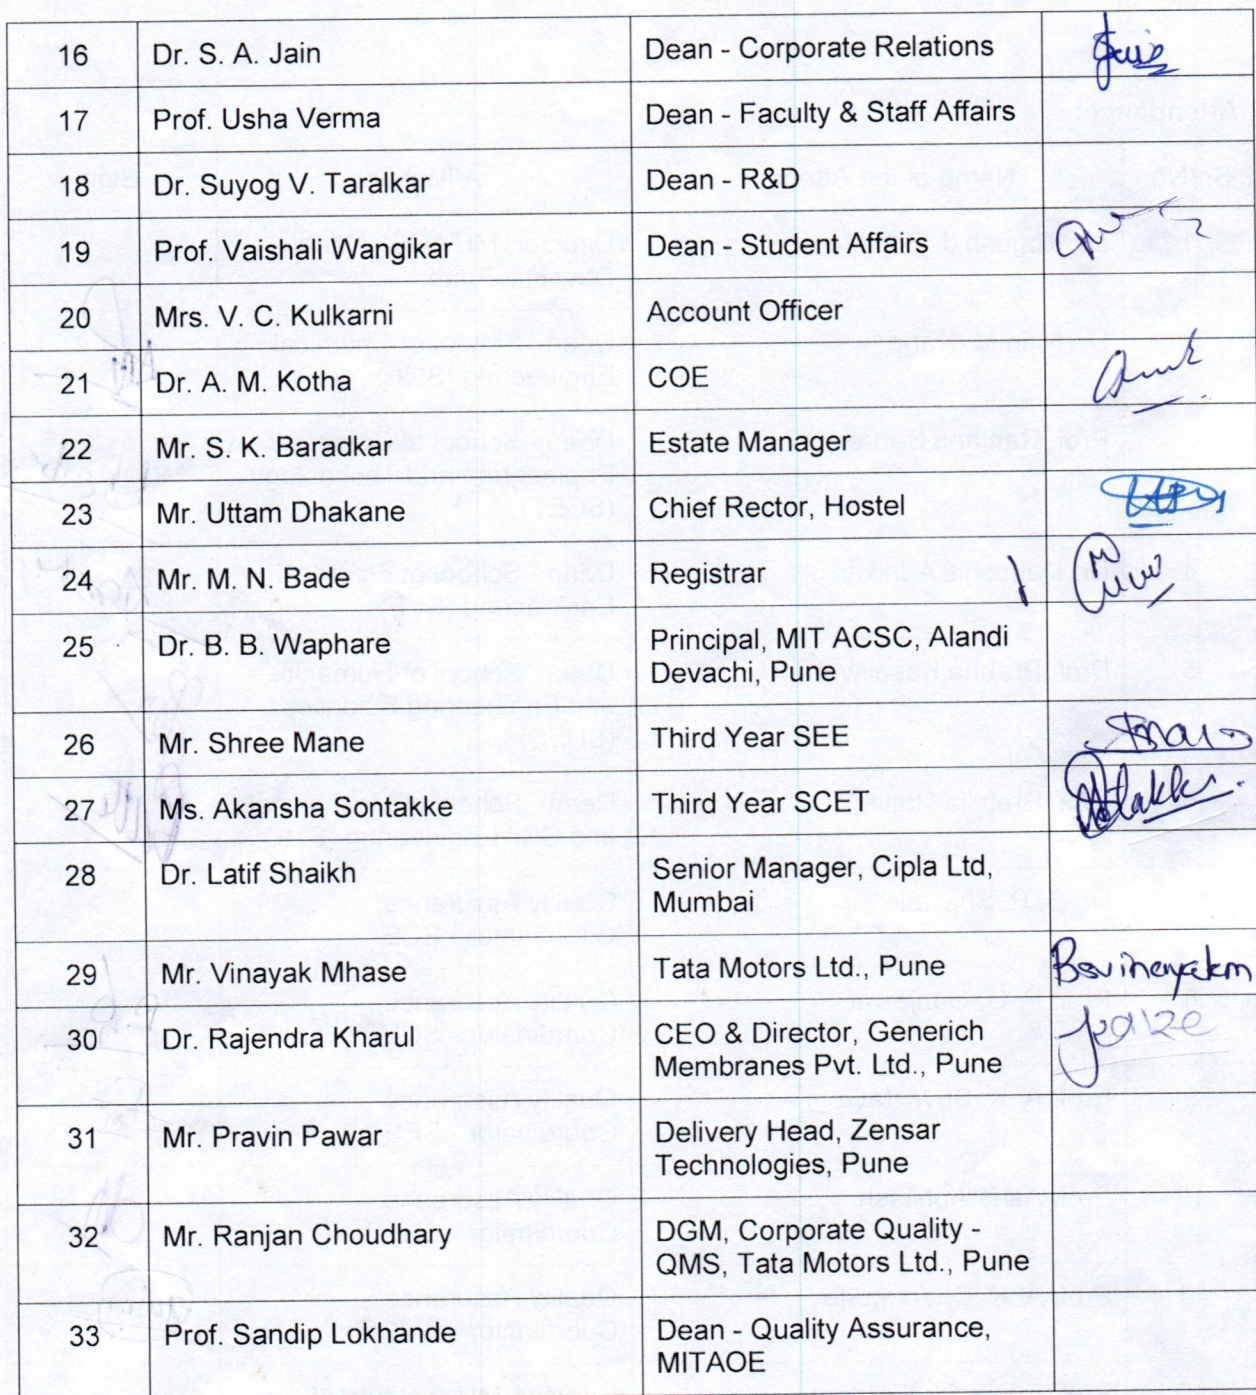 16 Dr. S. A. Jain Dean - Corporate Relations
17 Prof. Usha Verma Dean - Faculty & Staff Affairs
18 Dr. Suyog V. Taralkar Dean - R&D
19 Prof. Vaishali Wangikar Dean - Student Affairs
20 Mrs. V. C. Kulkarni Account Officer
21 Dr. A. M. Kotha COE
22 Mr. S. K. Baradkar Estate Manager
23 Mr. Uttam Dhakane Chief Rector, Hostel
24 Mr. M. N. Bade Registrar
25 Dr. B. B. Waphare Principal, MIT ACSC, Alandi
Devachi, Pune
26 Mr. Shree Mane Third Year SEE
27 Ms. Akansha Sontakke Third Year SCET
28 Dr. Latif Shaikh Senior Manager, Cipla Ltd,
Mumbai
29 Mr. Vinayak Mhase Tata Motors Ltd., Pune
30 Dr. Rajendra Kharul CEO & Director, Generich
Membranes Pvt. Ltd., Pune
31 Mr. Pravin Pawar Delivery Head, Zensar
Technologies, Pune
32 Mr. Ranjan Choudhary DGM, Corporate Quality -
QMS, Tata Motors Ltd., Pune
33 Prof. Sandip Lokhande Dean - Quality Assurance,
MITAOE